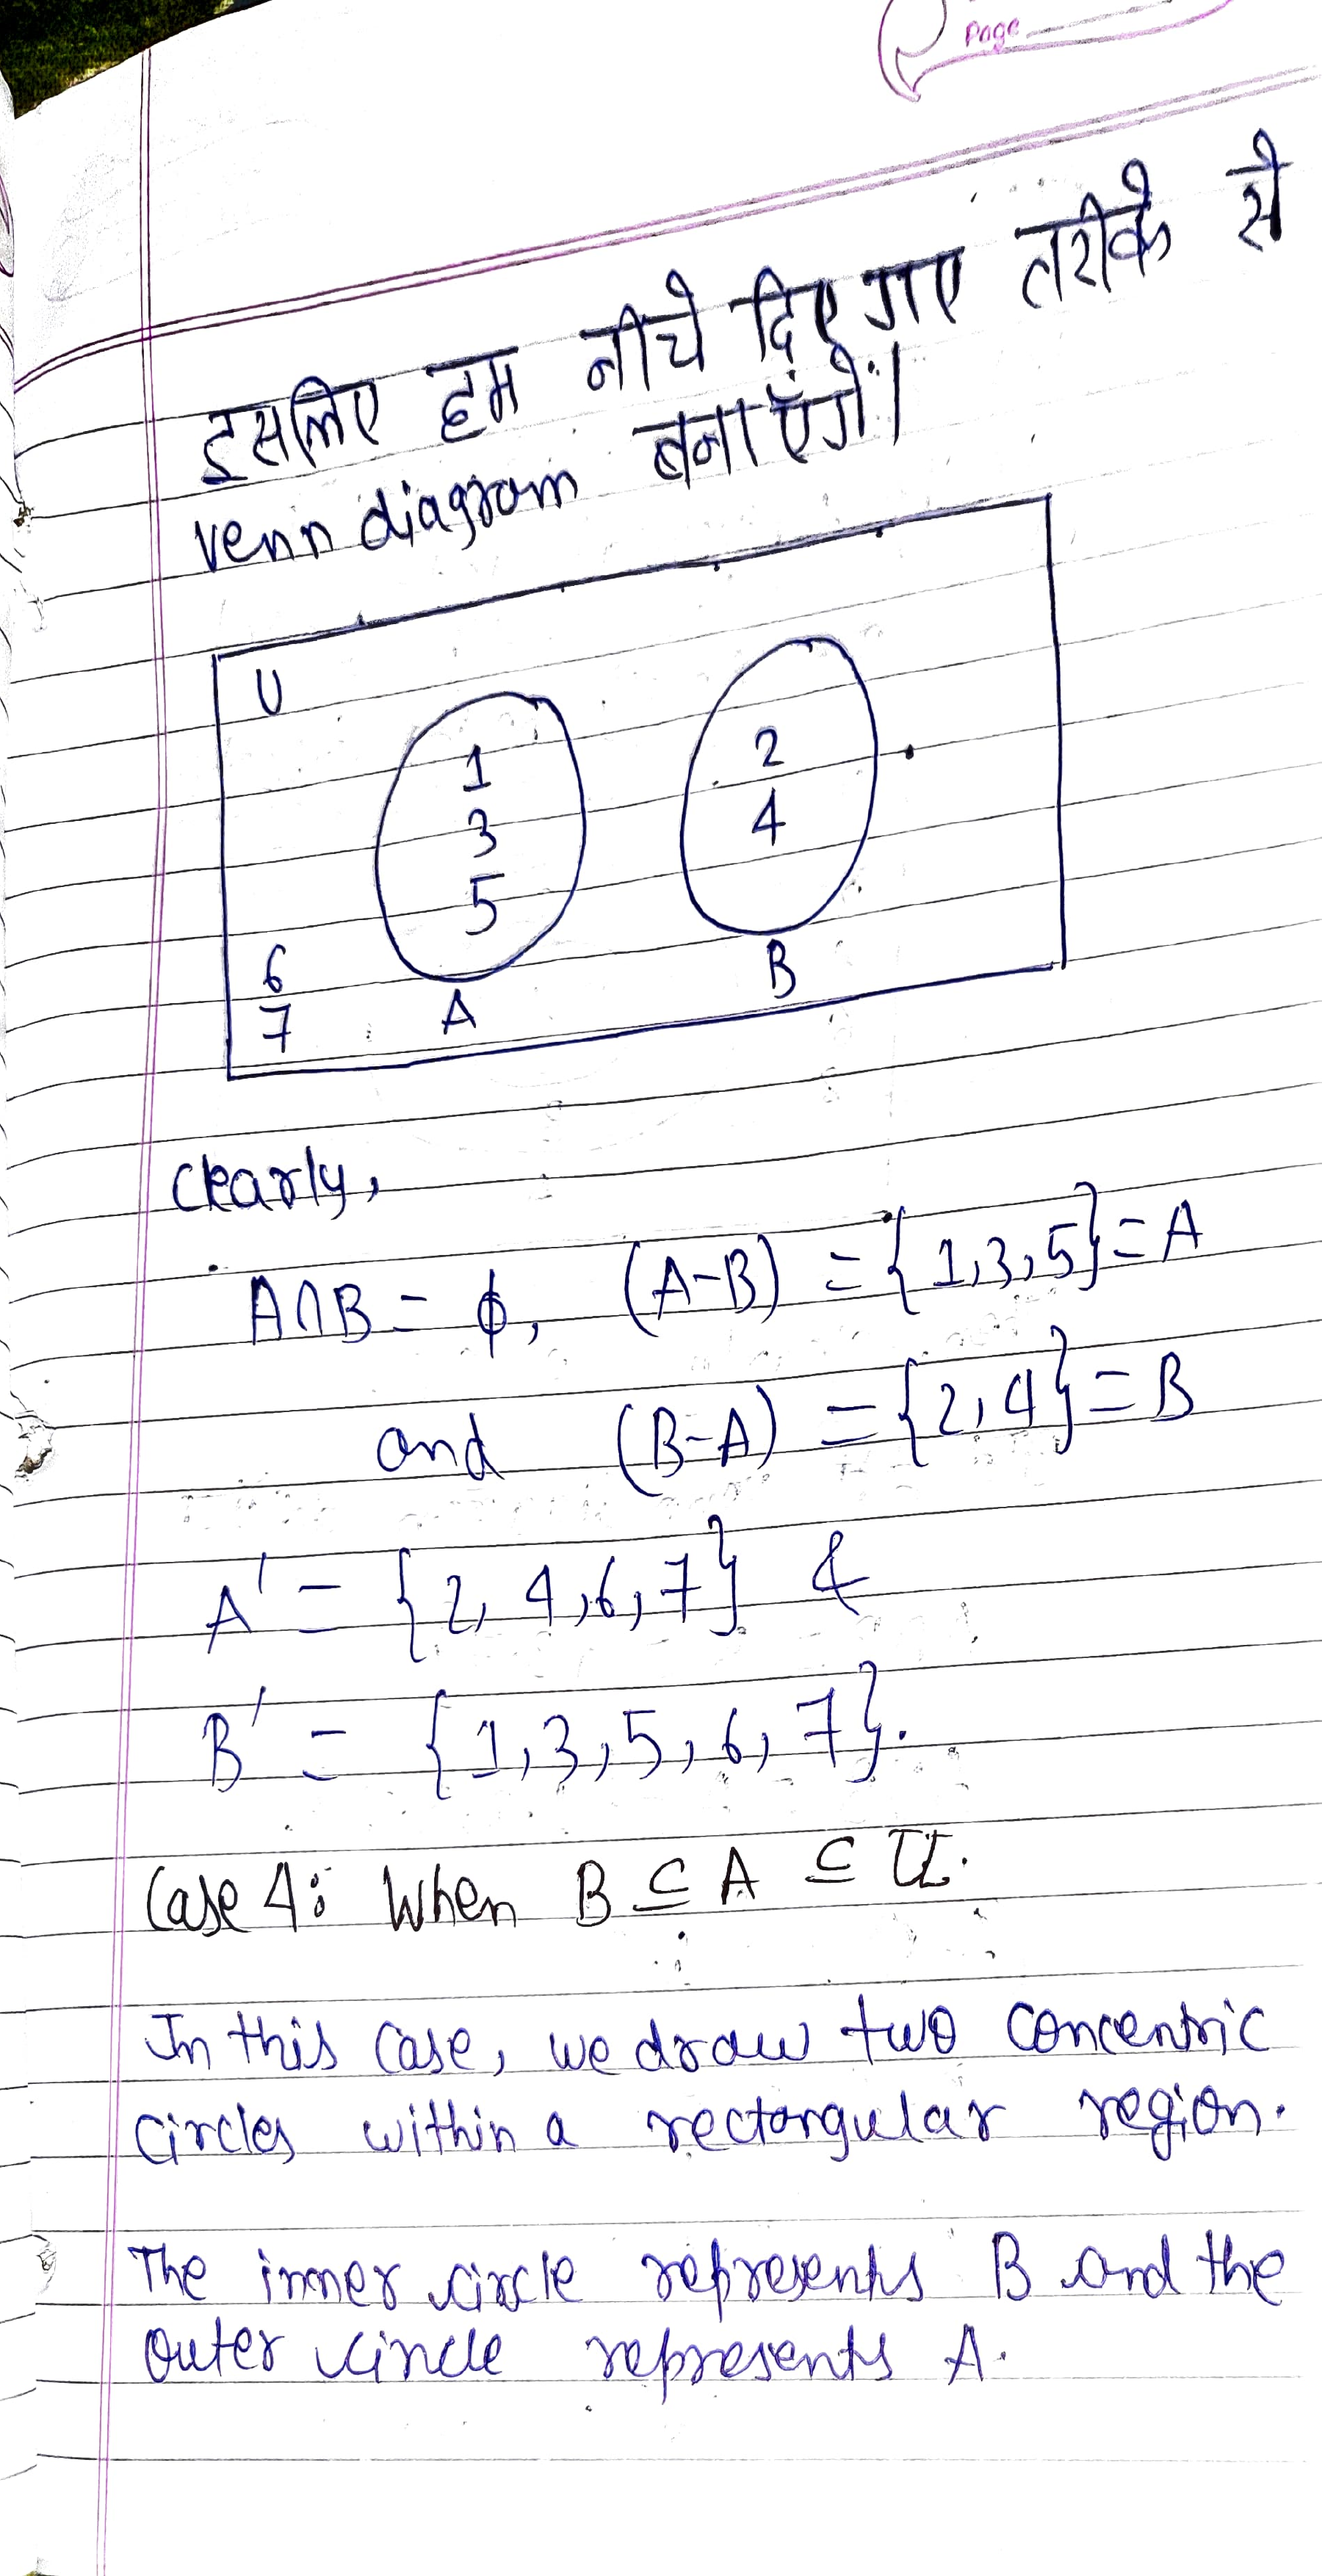 Page
इसलिए हम नीचे दिए गए तरीके से
venn diagram बनाएंगें।
U
1
3
5
2
4
6
7
A
B
Clearly,
A∩B = ϕ, (A-B) = {1,3,5} = A
and (B-A) = {2,4} = B
A' = {2, 4, 6, 7} &
B' = {1, 3, 5, 6, 7}.
Case 4: When B ⊆ A ⊆ U.
In this case, we draw two concentric
circles within a rectangular region.
The inner circle represents B and the
outer circle represents A.